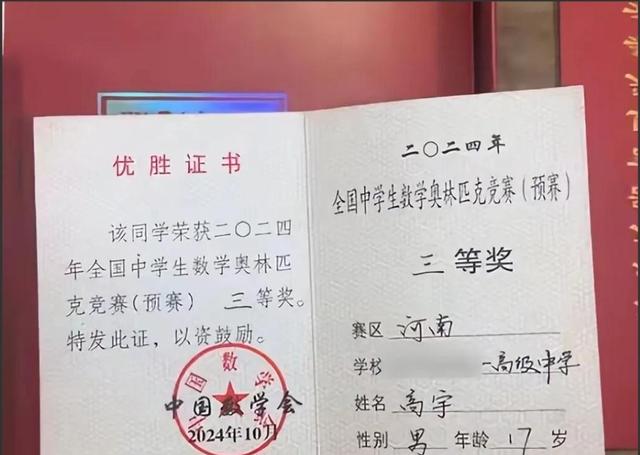 优胜证书
该同学荣获二〇二四
年全国中学生数学奥林匹
克竞赛(预赛) 三等奖。
特发此证,以资鼓励。
中国数学会
2024年10月
二〇二四年
全国中学生数学奥林匹克竞赛(预赛)
三等奖
赛区 河南
学校 一高级中学
姓名 高宇
性别 男 年龄 17 岁